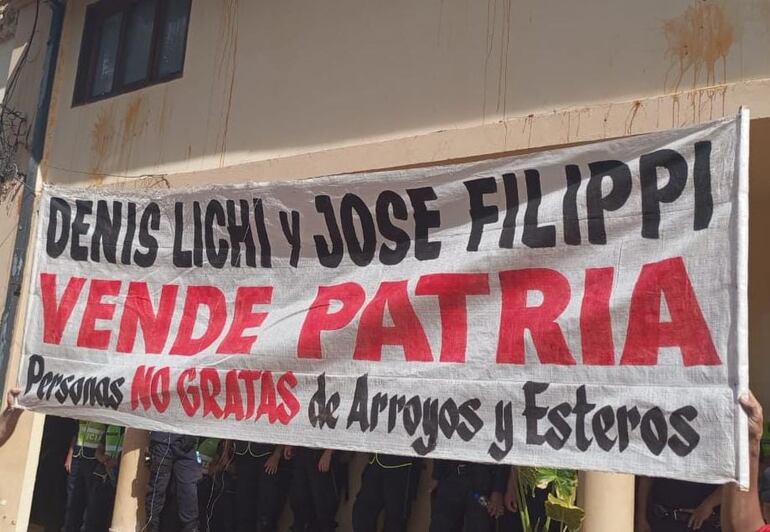 DENIS LICHI Y JOSE FILIPPI
VENDE PATRIA
Personas NO GRATAS de Arroyos y Esteros